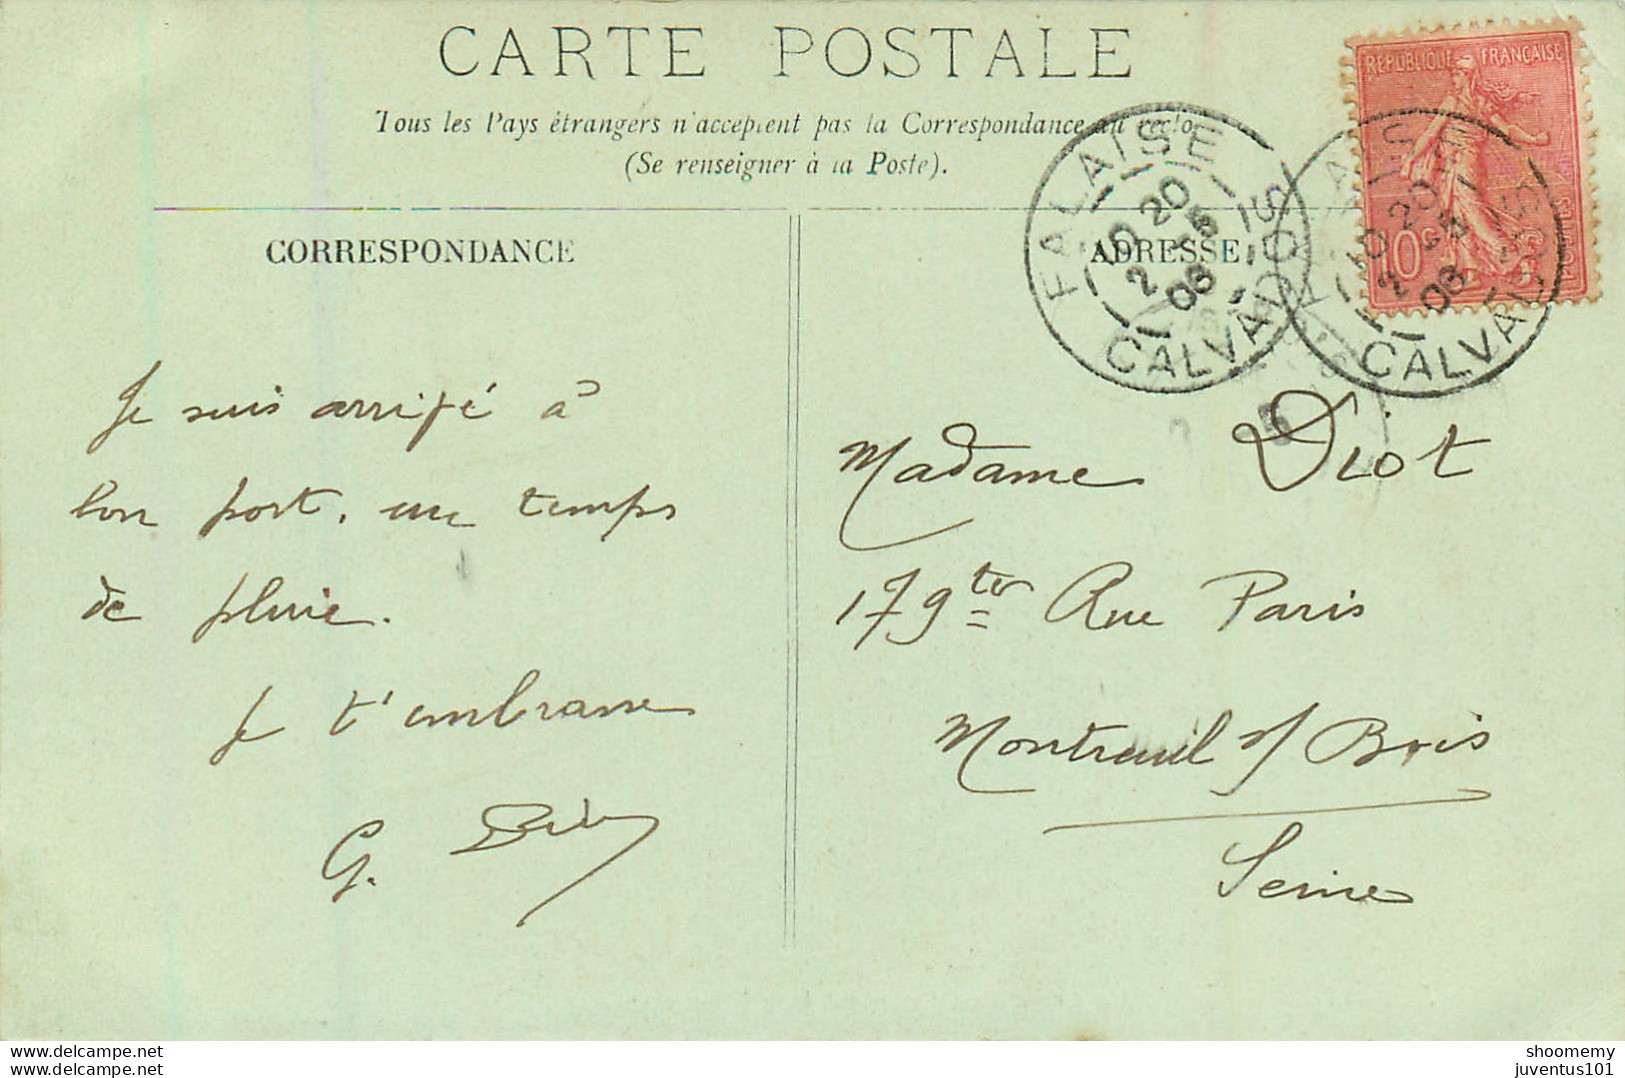 CARTE POSTALE
Tous les Pays étrangers n'acceptent pas la Correspondance au recto
(Se renseigner à la Poste).
CORRESPONDANCE
ADRESSE
REPUBLIQUE FRANÇAISE
10c
FALAISE
10 20
2 - 5
08
CALVADOS
FALAISE
10 20
2 - 5
08
CALVADOS
Je suis arrivé à
bon port, un temps
de pluie.
Je t'embrasse
G.
Madame Diot
179 ter Rue Paris
Montreuil s/ Bois
Seine
www.delcampe.net
shoomemy
juventus101